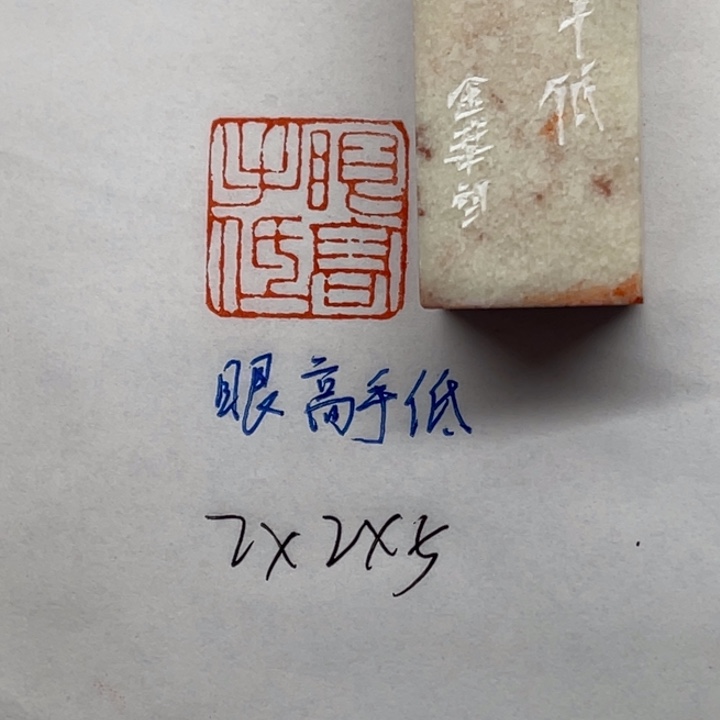 手低
金華刻
眼高手低
眼高手低
2X2X5